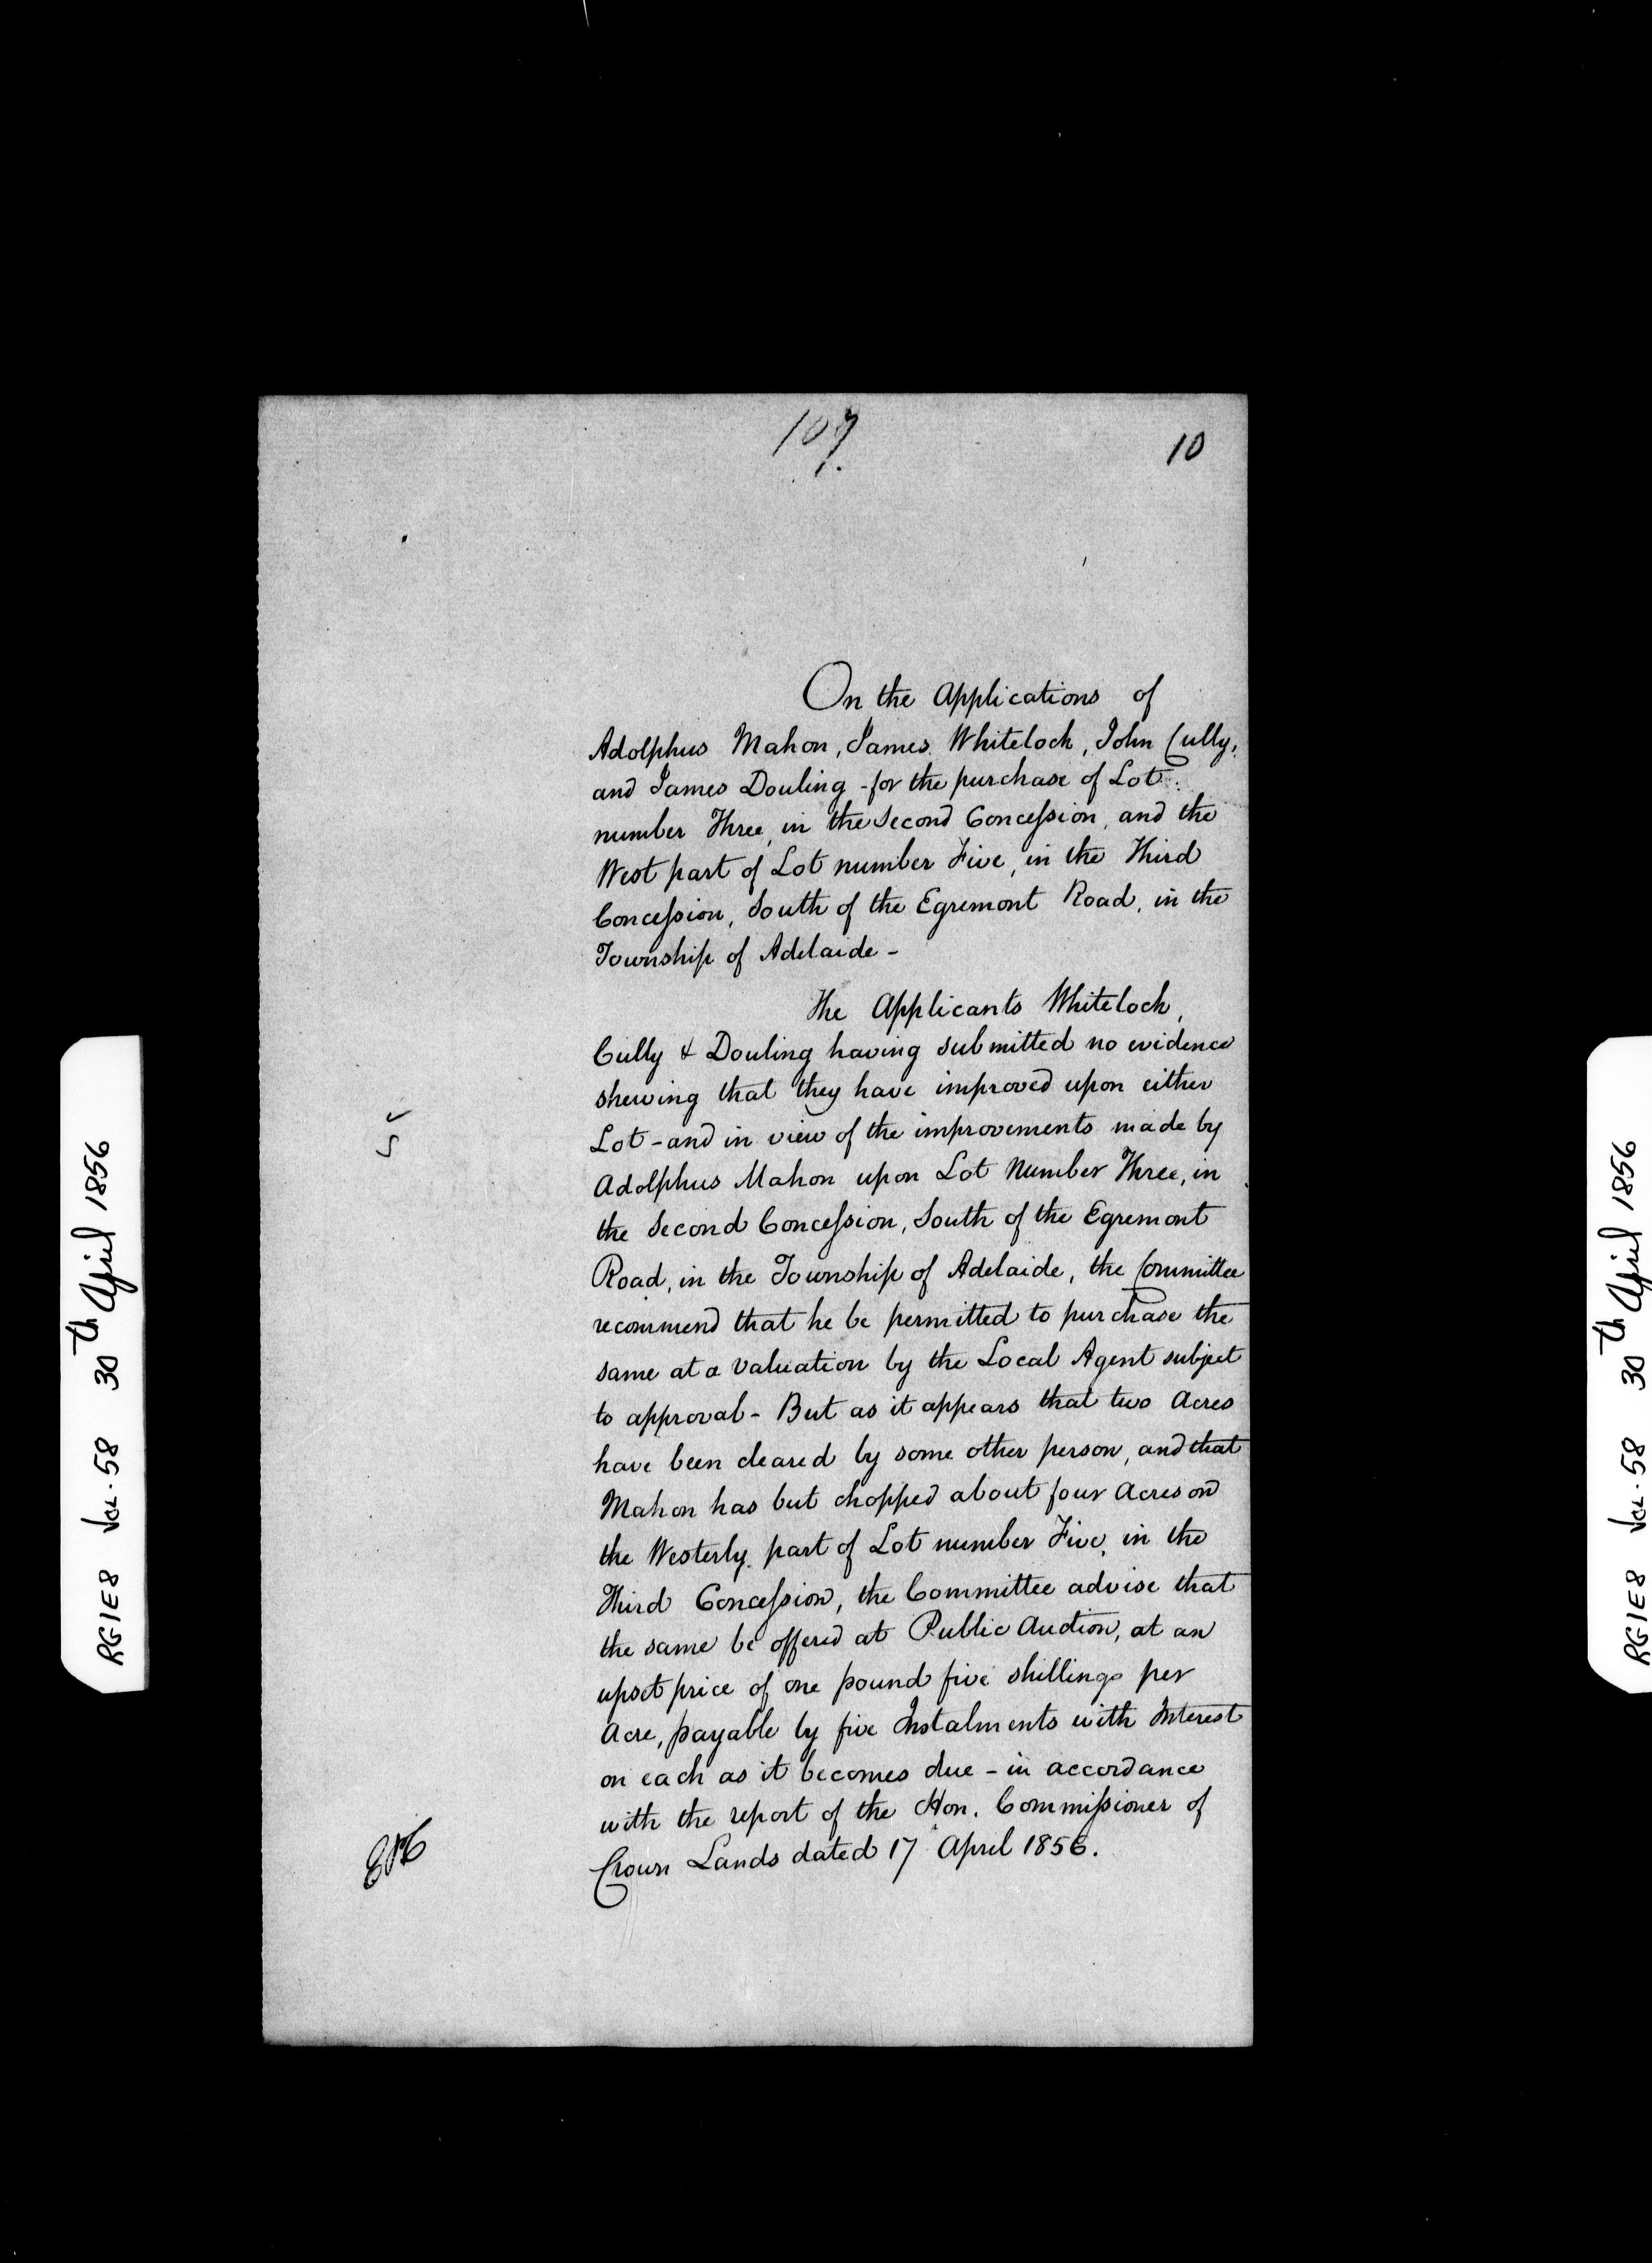 107.
10
On the Applications of
Adolphus Mahon, James Whitelock, John Cully,
and James Douling - for the purchase of Lot
number Three, in the Second Concession, and the
West part of Lot number Five, in the Third
Concession, South of the Egremont Road, in the
Township of Adelaide -
The Applicants Whitelock,
Cully & Douling having submitted no evidence
shewing that they have improved upon either
Lot - and in view of the improvements made by
Adolphus Mahon upon Lot Number Three, in
the Second Concession, South of the Egremont
Road, in the Township of Adelaide, the Committee
recommend that he be permitted to purchase the
same at a valuation by the Local Agent subject
to approval - But as it appears that two Acres
have been cleared by some other person, and that
Mahon has but chopped about four Acres on
the Westerly part of Lot number Five, in the
Third Concession, the Committee advise that
the same be offered at Public Auction, at an
upset price of one pound five shillings per
Acre, payable by five Instalments with Interest
on each as it becomes due - in accordance
with the report of the Hon. Commissioner of
Crown Lands dated 17 April 1856.
RG1E8 Vol. 58 30th April 1856
RG1E8 Vol. 58 30th April 1856